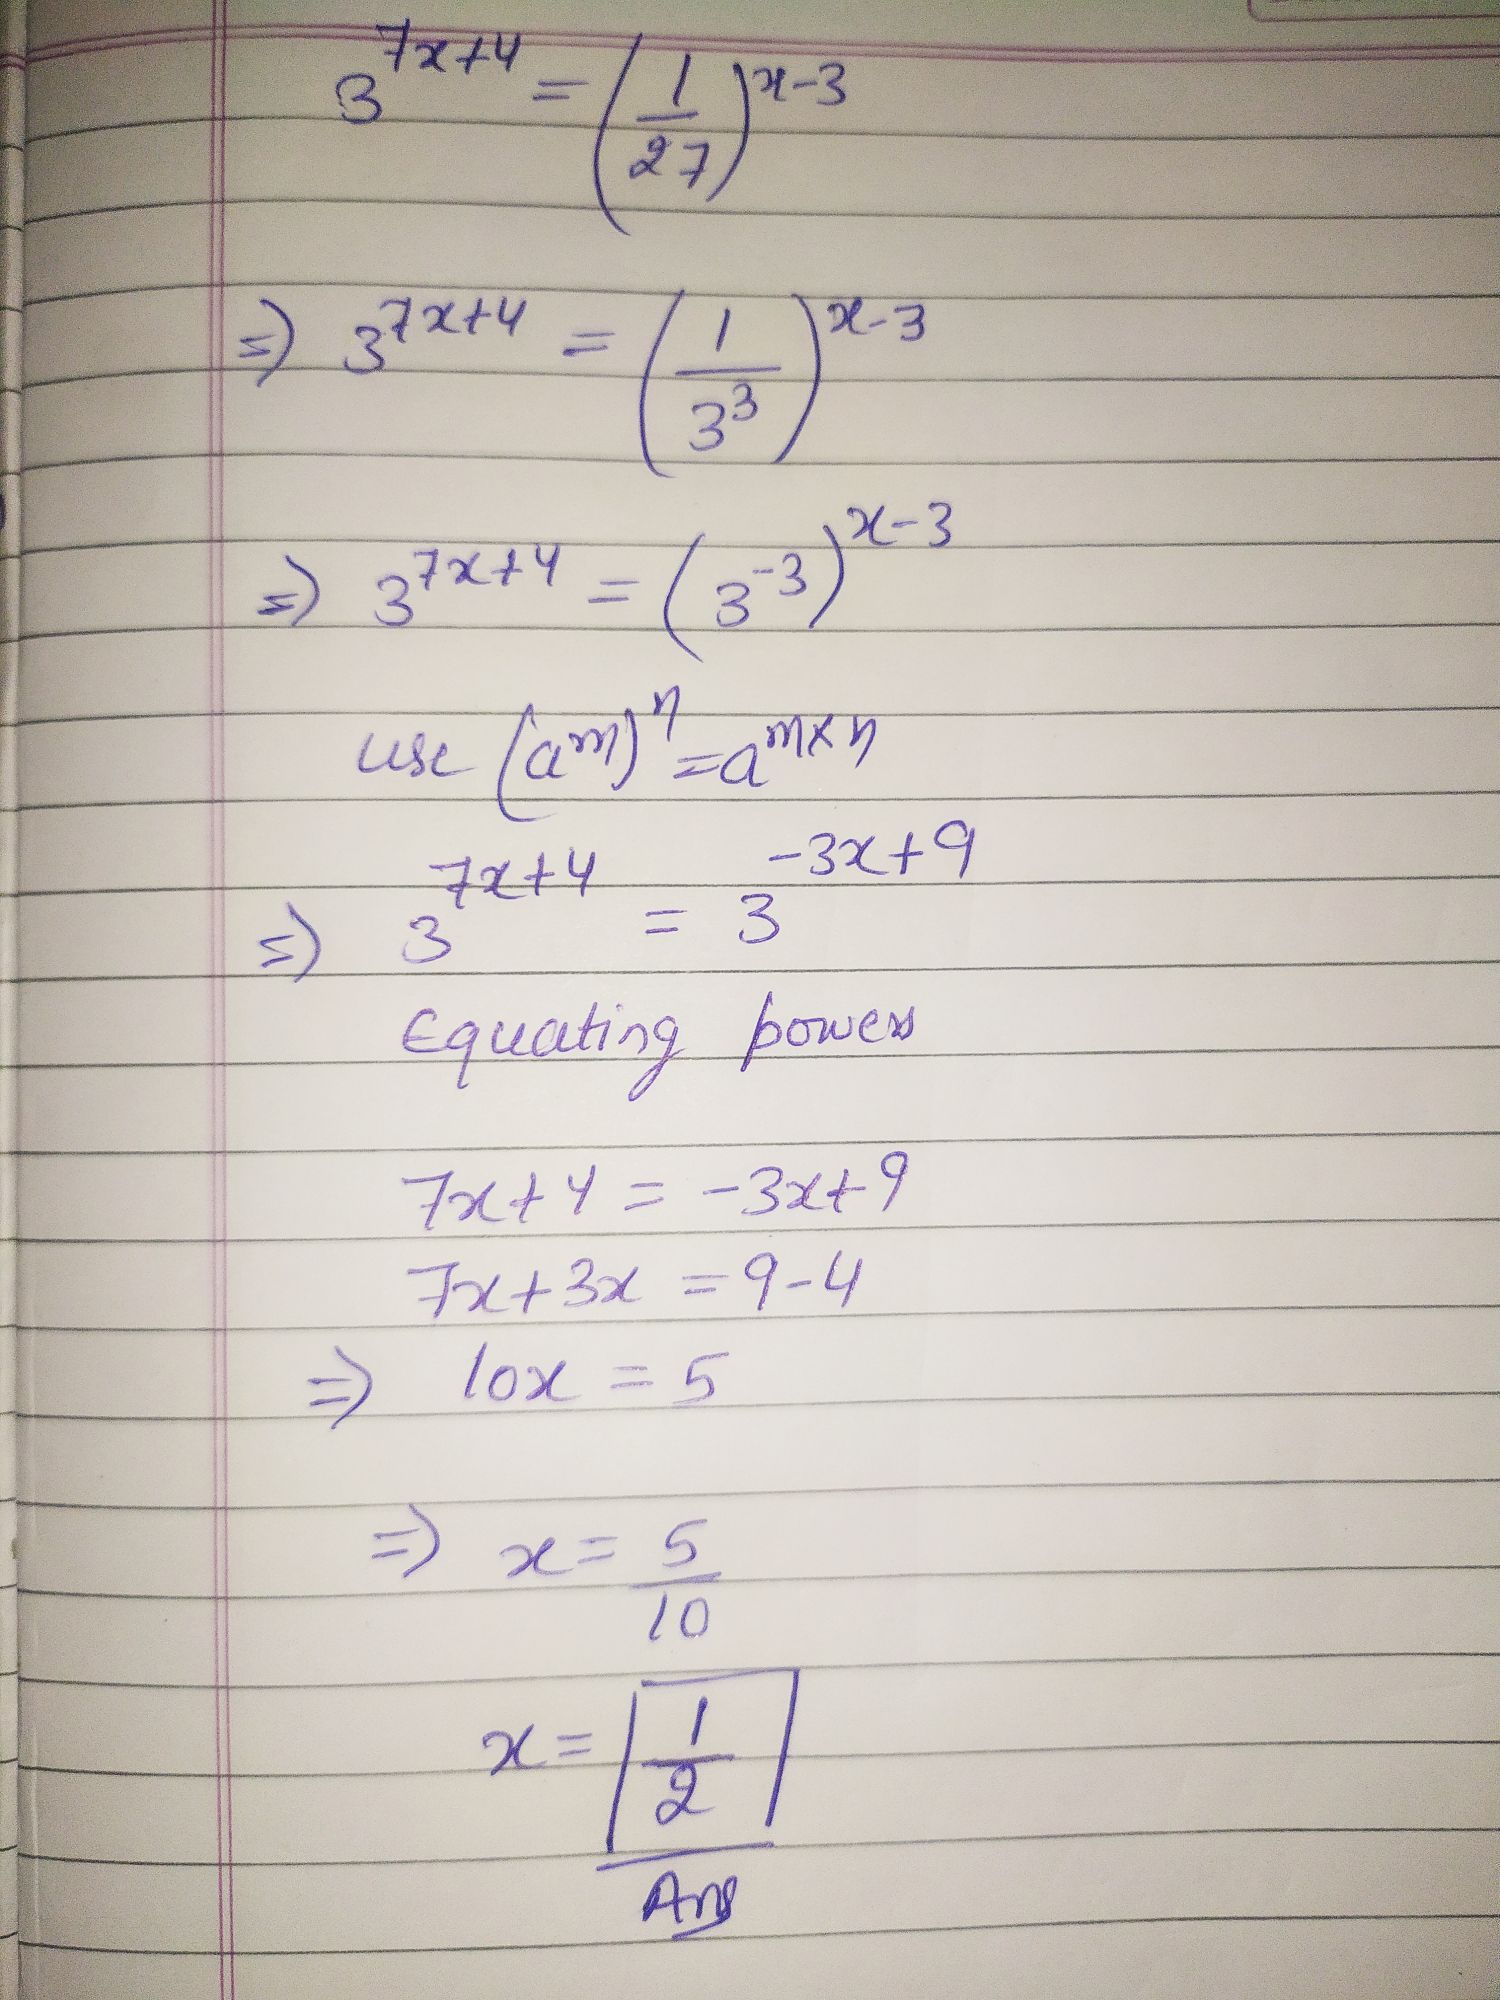 3^(7x+4) = (1/27)^(x-3)
=) 3^(7x+4) = (1/3^3)^(x-3)
=) 3^(7x+4) = (3^-3)^(x-3)
use (a^m)^n = a^(m×n)
=) 3^(7x+4) = 3^(-3x+9)
Equating powers
7x+4 = -3x+9
7x+3x = 9-4
=) 10x = 5
=) x = 5/10
x = 1/2
Ans